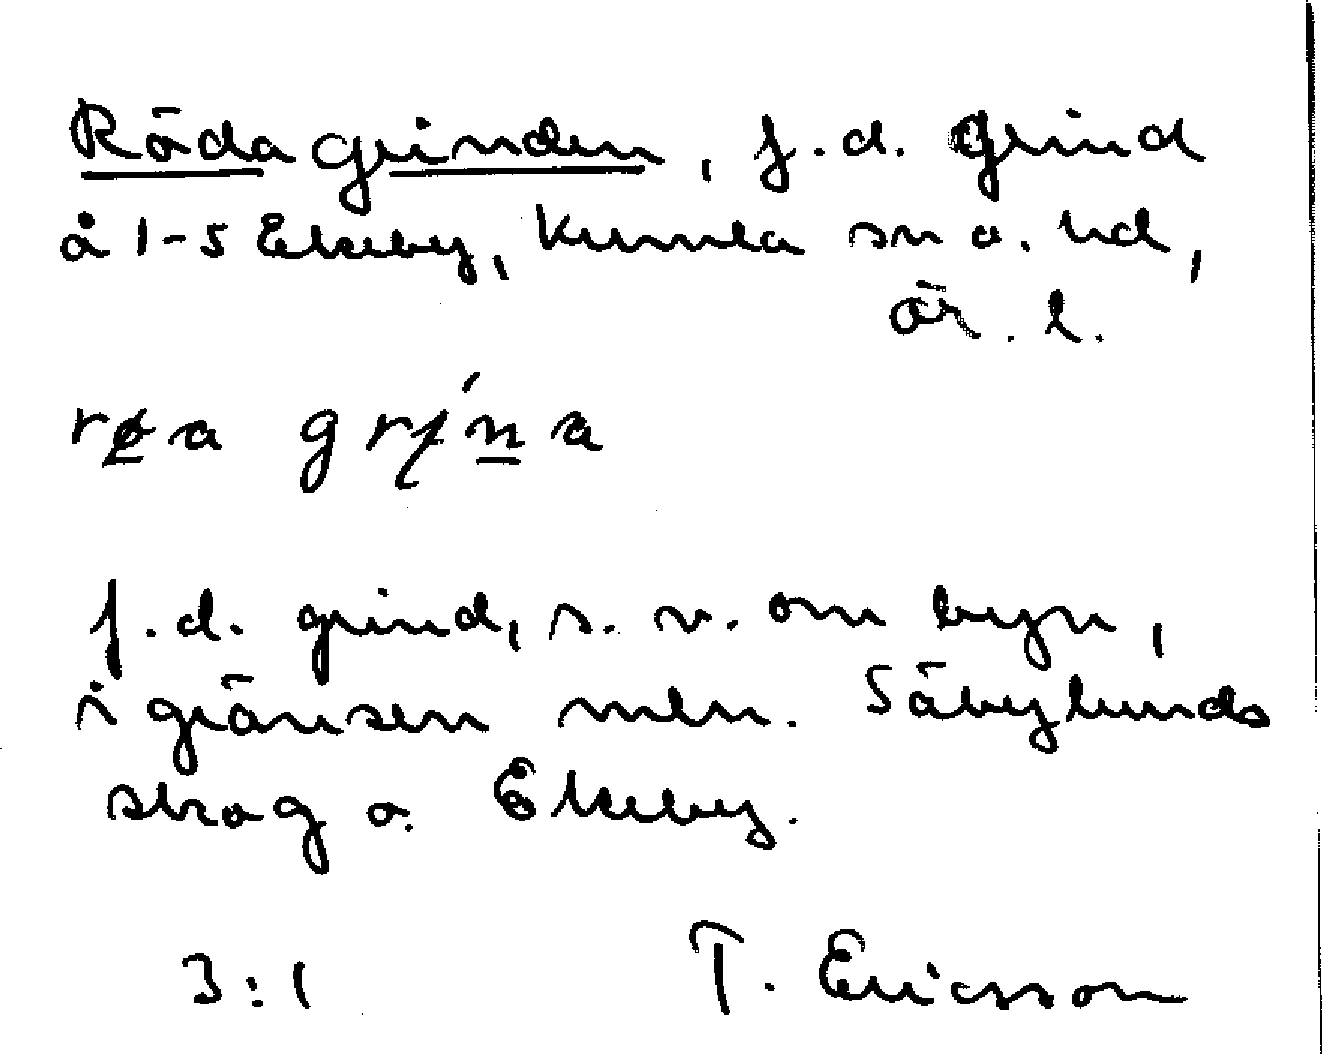 Röda grinden, f.d. grind
å 1-5 Ekeby, Kumla sn o. hd,
ör. l.
røa grina
f.d. grind, s.v. om byn,
i gränsen mln. Säbylunds
skog o. Ekeby.
3:1 T. Ericsson